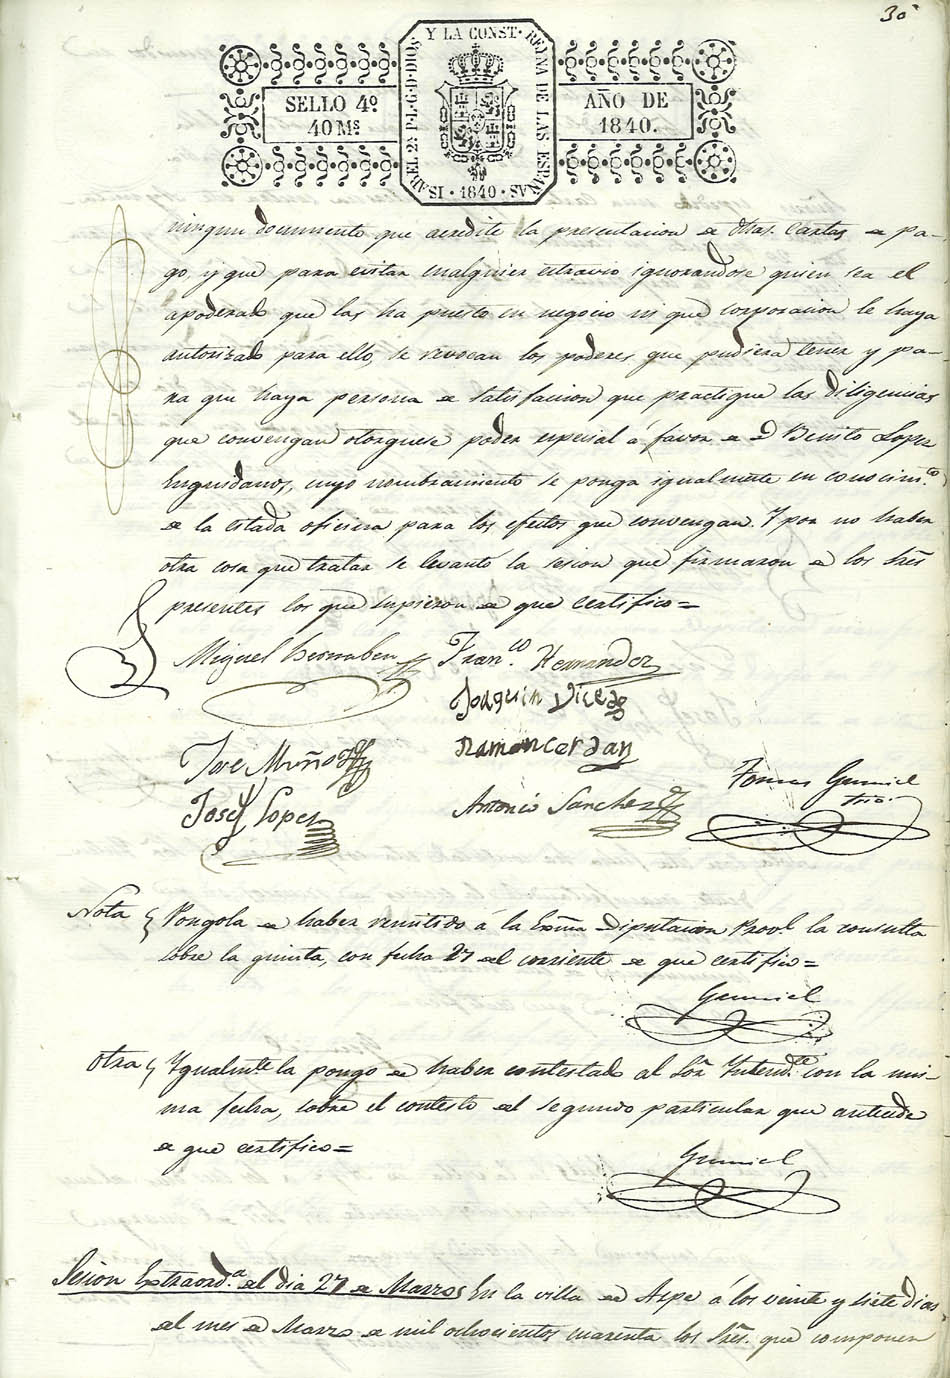 30
ISABEL 2ª P. L. G. D. DIOS Y LA CONST. REYNA DE LAS ESPAÑAS · 1840 ·
SELLO 4º
40 Ms
AÑO DE
1840.
ningun documento que acredite la presentacion de dhas. Cartas de pa-
go, y que para evitar cualquier estravio ignorandose quien sea el
apoderado que las ha puesto en negocio ni que corporacion le haya
autorizado para ello, se revocan los poderes que pudiera tener y pa-
ra que haya persona de satisfaccion que practique las diligencias
que convengan otorguese poder especial á favor de D Benito Lopez
Enguidanos, cuyo nombramiento se ponga igualmente en conocim.to
de la citada oficina para los efectos que convengan. Y por no haber
otra cosa que tratar se levantó la sesion que firmaron de los Sres
presentes los que supieron de que certifico=
Miguel Bernabeu
Fran.co Hernandez
Joaquin Vicedo
Jose Muñoz
Ramon Cerdan
Josef Lopez
Antonio Sanchez
Tomas Gumiel
Srio.
Nota
Pongola de haber remitido á la Exma Diputacion Provl la consulta
sobre la quinta, con fecha 27 del corriente de que certifico=
Gumiel
Otra
Ygualmte la pongo de haber contestado al Sor Yntendte con la mis-
ma fecha, sobre el contesto del segundo particular que antecede
de que certifico=
Gumiel
Sesion Extraord.a del dia 27 de Marzo En la villa de Aspe á los veinte y siete dias
del mes de Marzo de mil ochocientos cuarenta los Sres. que componen